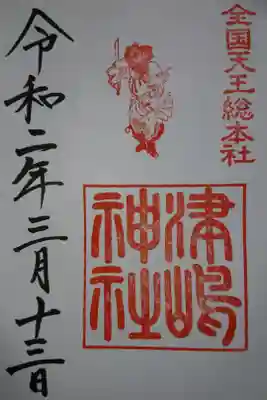 全国天王総本社
津嶋
神社
令和二年三月十三日